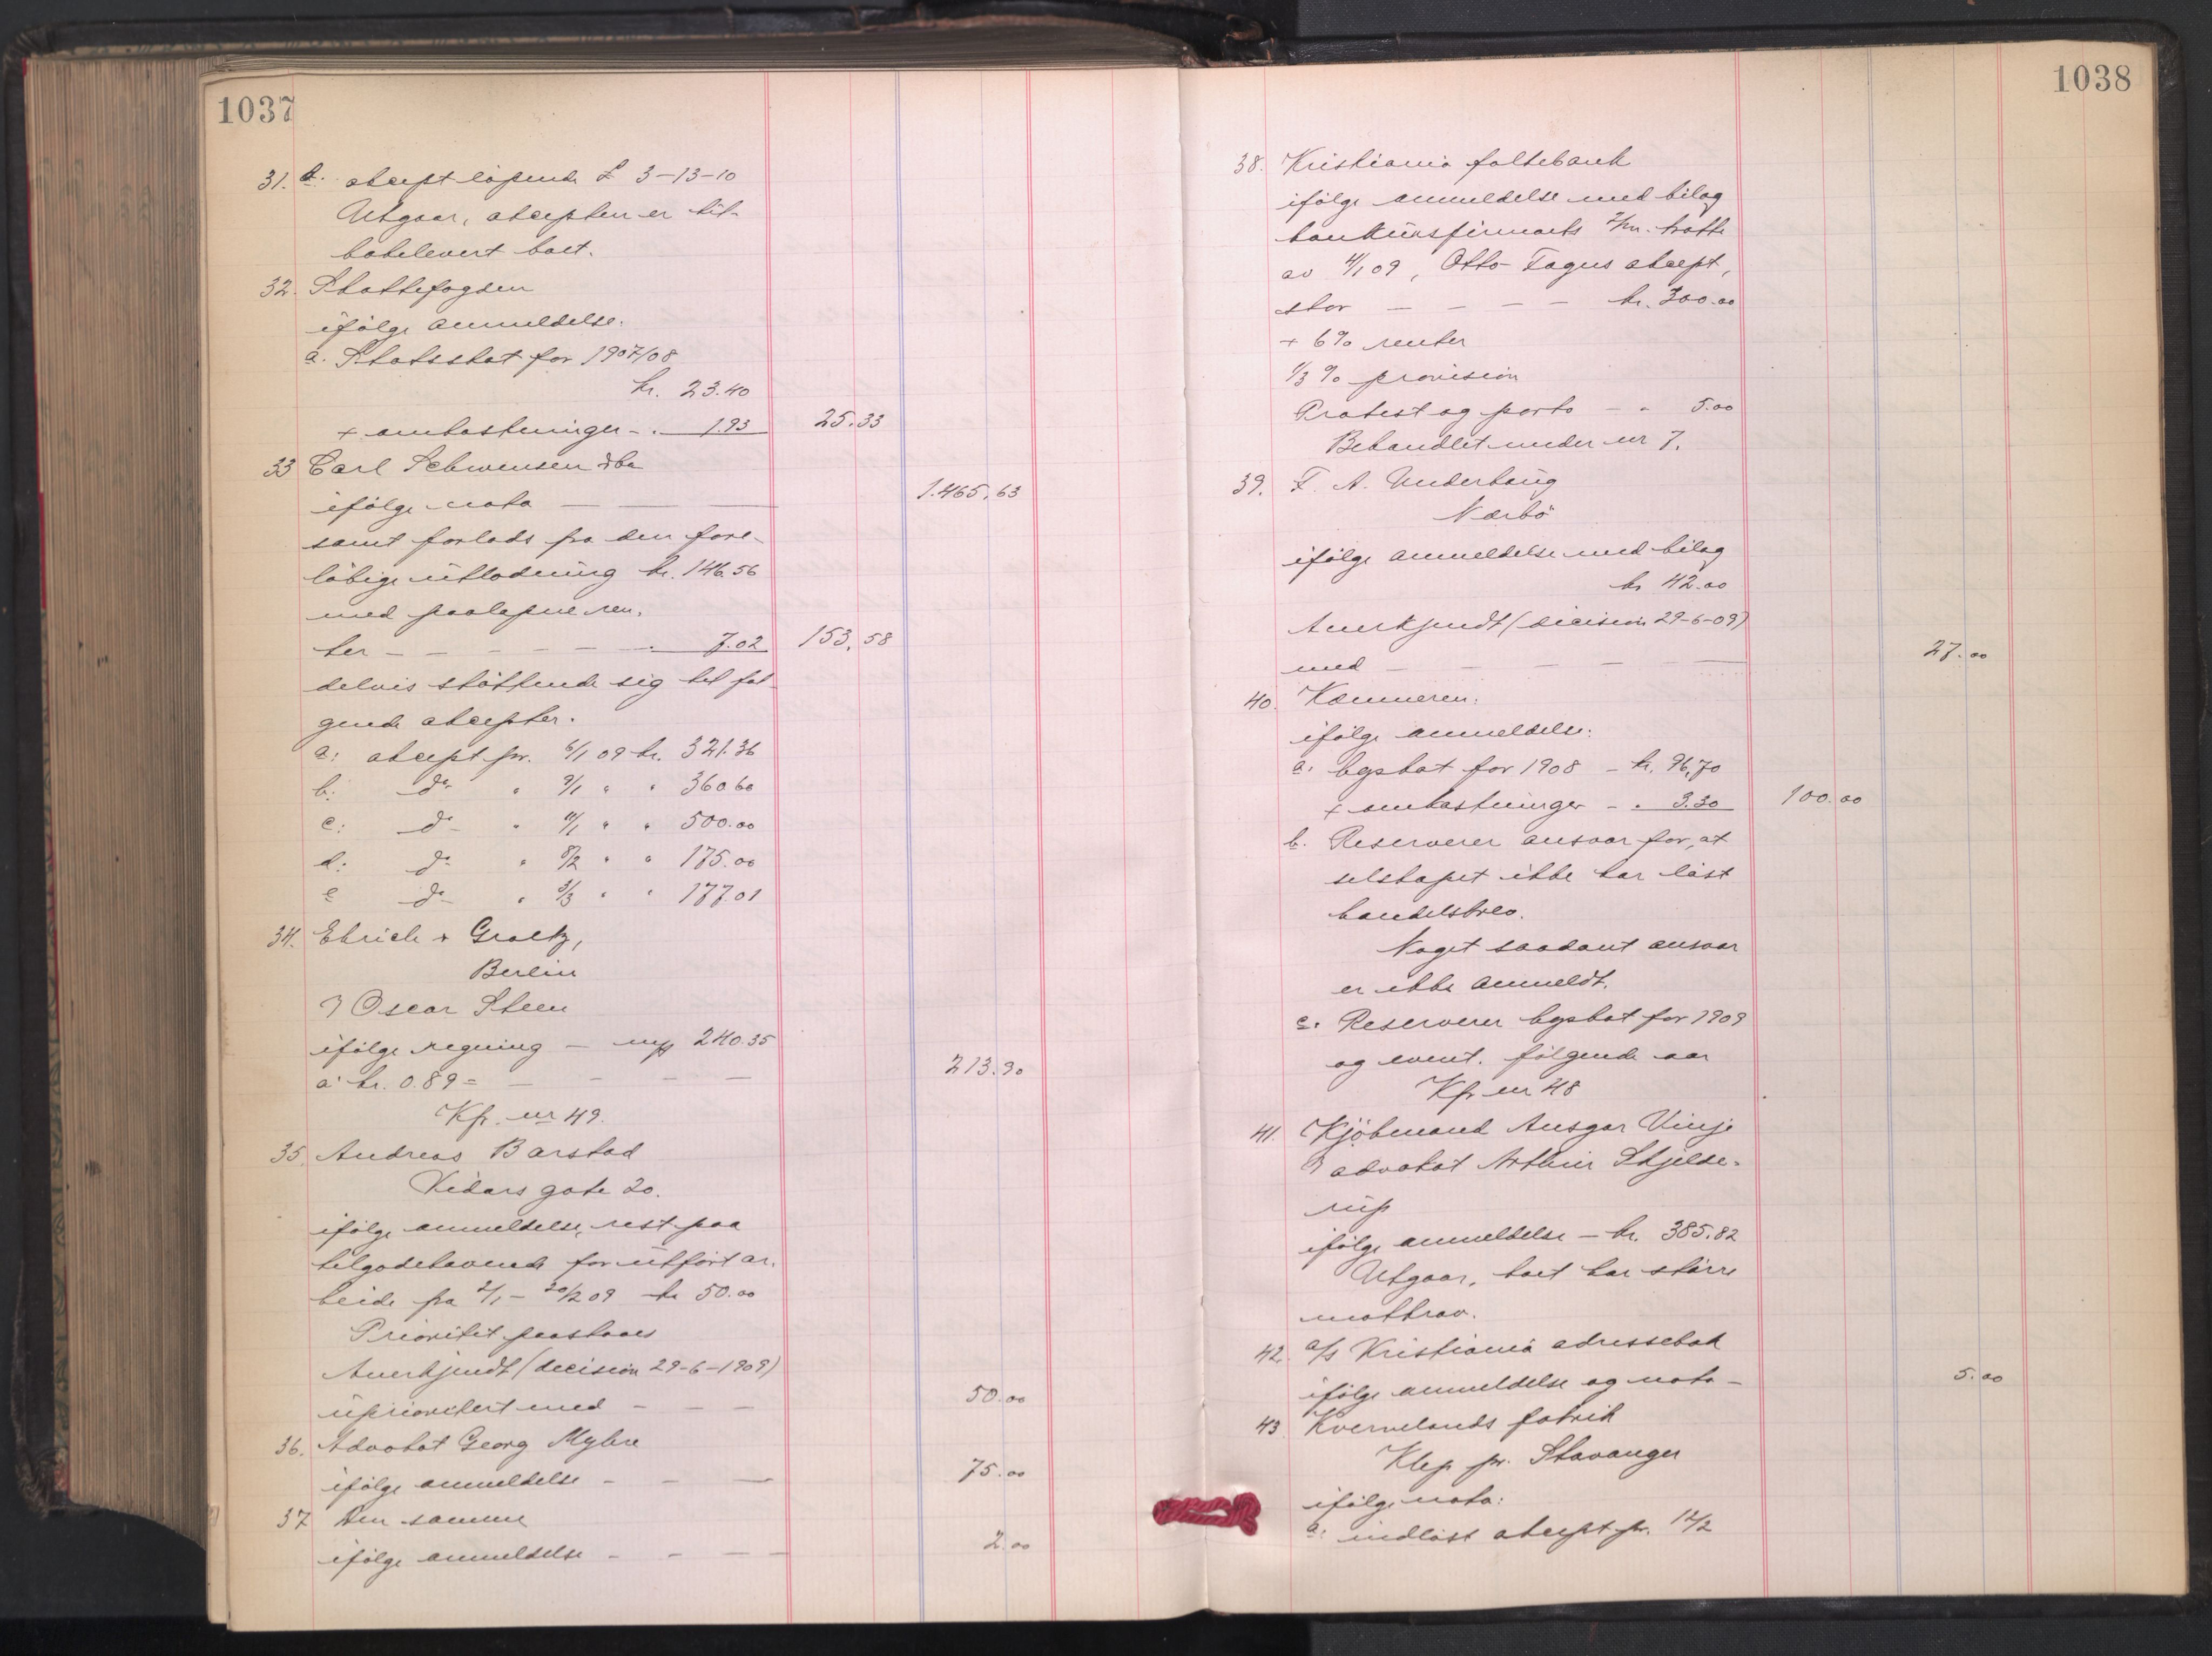 1037
31. d. akcept løpende £ 3-13-10
Utgaar, akcepten er til-
bakelevert boet.
32. Skattefogden
ifølge anmeldelse.
a. Statsskat for 1907/08
kr. 23.40
+ omkostninger - . 1.93 25.33
33 Carl Schwensen &Co
ifølge nota — — — 1.465,63
samt forlods fra den fore-
løbige utlodning kr. 146.56
med paaløpne ren-
ter - - - - - - . 7.02 153,58
delvis støttende sig til føl-
gende akcepter.
a: akcept pr. 6/1 09 kr. 321.36
b: do " 9/1 " " 360.60
c: do " 11/1 " " 500.00
d: do " 8/2 " " 175.00
e do " 3/3 " " 177.01
34. Ehrich & Graetz,
Berlin
Oscar Steen
ifølge regning — 240.35
a kr. 0.89 = — - - — 213.90
Kfr. nr 49.
35. Andreas Barstad
Vidars gate 20.
ifølge anmeldelse, rest paa
tilgodehavende for utført ar-
beide fra 2/1 - 20/2 09 kr 50.00
Prioritet paastaaes
Anerkjendt (decision 29-6-1909)
uprioritert med - - — 50.00
36. Advokat Georg Myhre
ifølge anmeldelse - - — 75.00
37 Den samme
ifølge anmeldelse - - — - 2.00
1038
38. Kristiania folkebank
ifølge anmeldelse med bilag
konkursfirmaets 2/m. tratte
av 4/1 09, Otto Fagus akcept,
stor — - - - kr. 300.00
+ 6% renter
1/3 % provision
Protest og porto - " 5.00
Behandlet under nr 7.
39. F. A. Underhaug
Nærbø
ifølge anmeldelse med bilag
kr 42.00
Anerkjendt (decision 29-6-09)
med — - — - — 27.00
40. Kæmneren.
ifølge anmeldelse:
a: byskat for 1908 - kr. 96,70
+ omkostninger - . 3.30 100.00
b. Reserverer ansvar for, at
selskapet ikke har løst
handelsbrev.
Noget saadant ansvar
er ikke anmeldt.
c. Reserverer byskat for 1909
og event. følgende aar
Kfr nr 48
41. Kjøbmand Ansgar Vinje
advokat Arthur Skjelde-
rup
ifølge anmeldelse - kr. 385.82
Utgaar, boet har større
motkrav.
42. A/S Kristiania adressebok
ifølge anmeldelse og nota - 5.00
43 Kvernelands fabrik
Klep pr. Stavanger
ifølge nota:
a: indløst akcept pr. 12/2